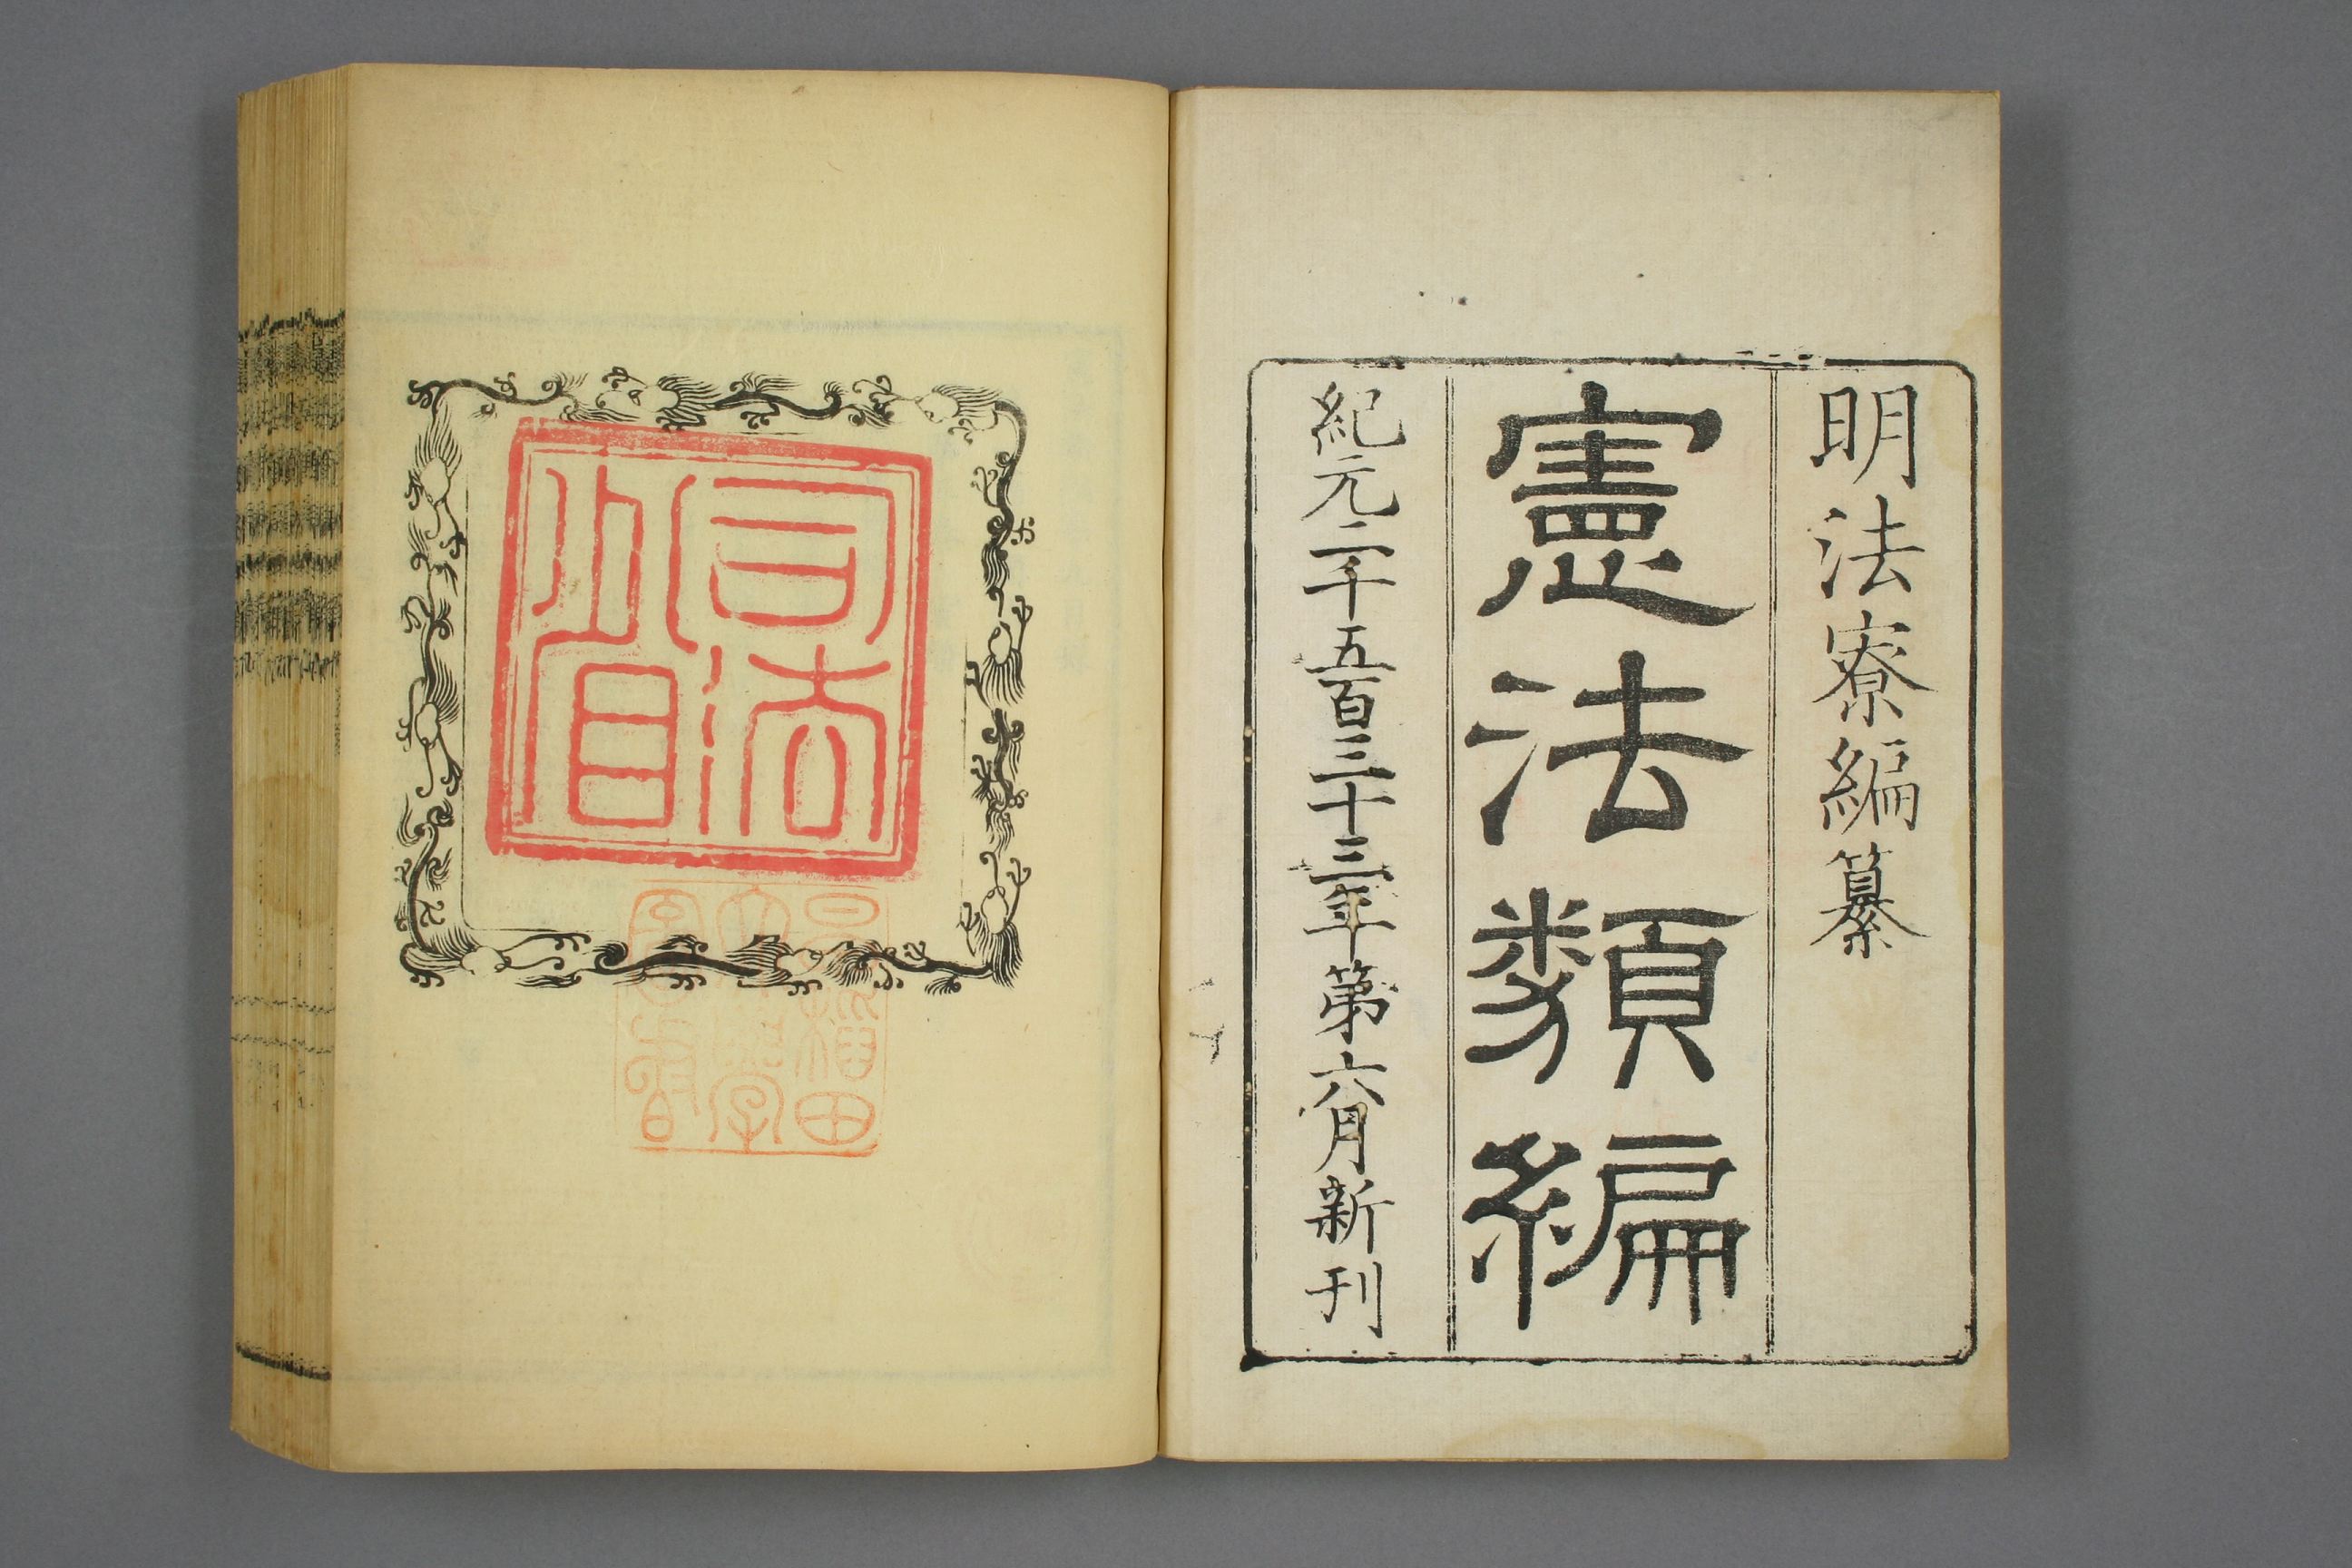 明法寮編纂
憲法類編
紀元二千五百三十三年第六月新刊
司法
省
早稲田
大學